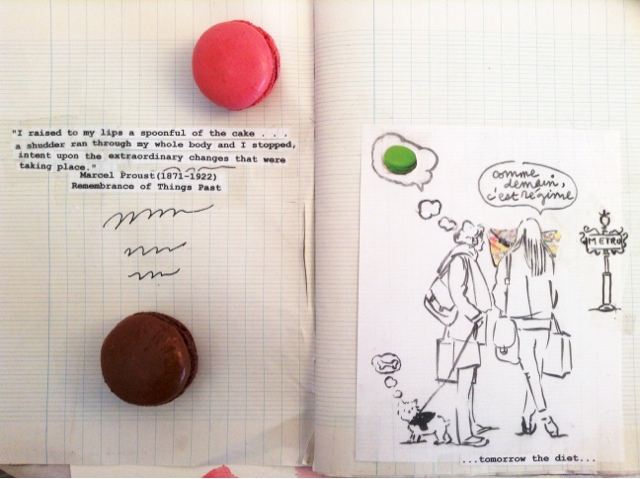 "I raised to my lips a spoonful of the cake . . .
a shudder ran through my whole body and I stopped,
intent upon the extraordinary changes that were
taking place."
Marcel Proust(1871-1922)
Remembrance of Things Past
comme
demain,
c'est régime
METRO
...tomorrow the diet...